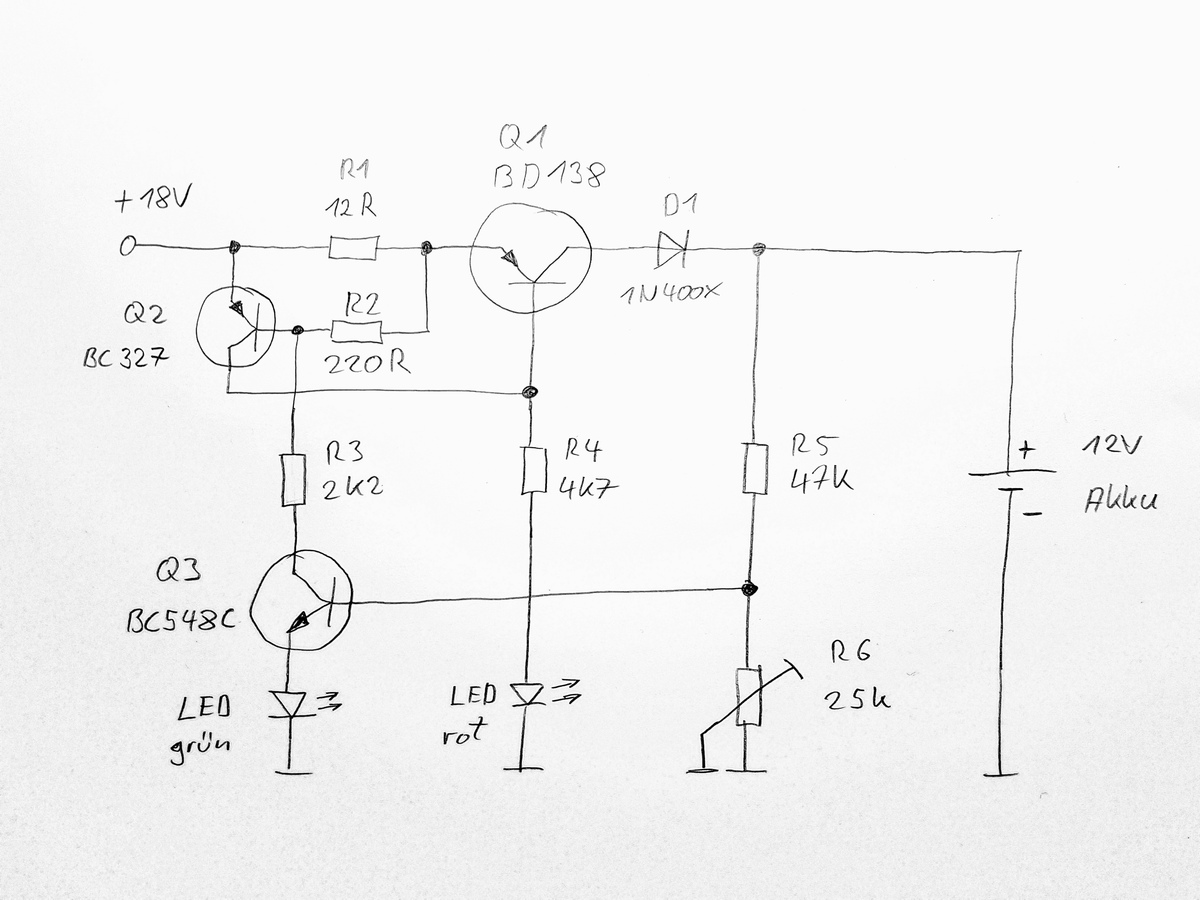 Q1
BD138
R1
12R
+18V
D1
1N400X
Q2
BC327
R2
220R
R3
2K2
R4
4K7
R5
47K
+
12V
Akku
-
Q3
BC548C
R6
25k
LED
grün
LED
rot